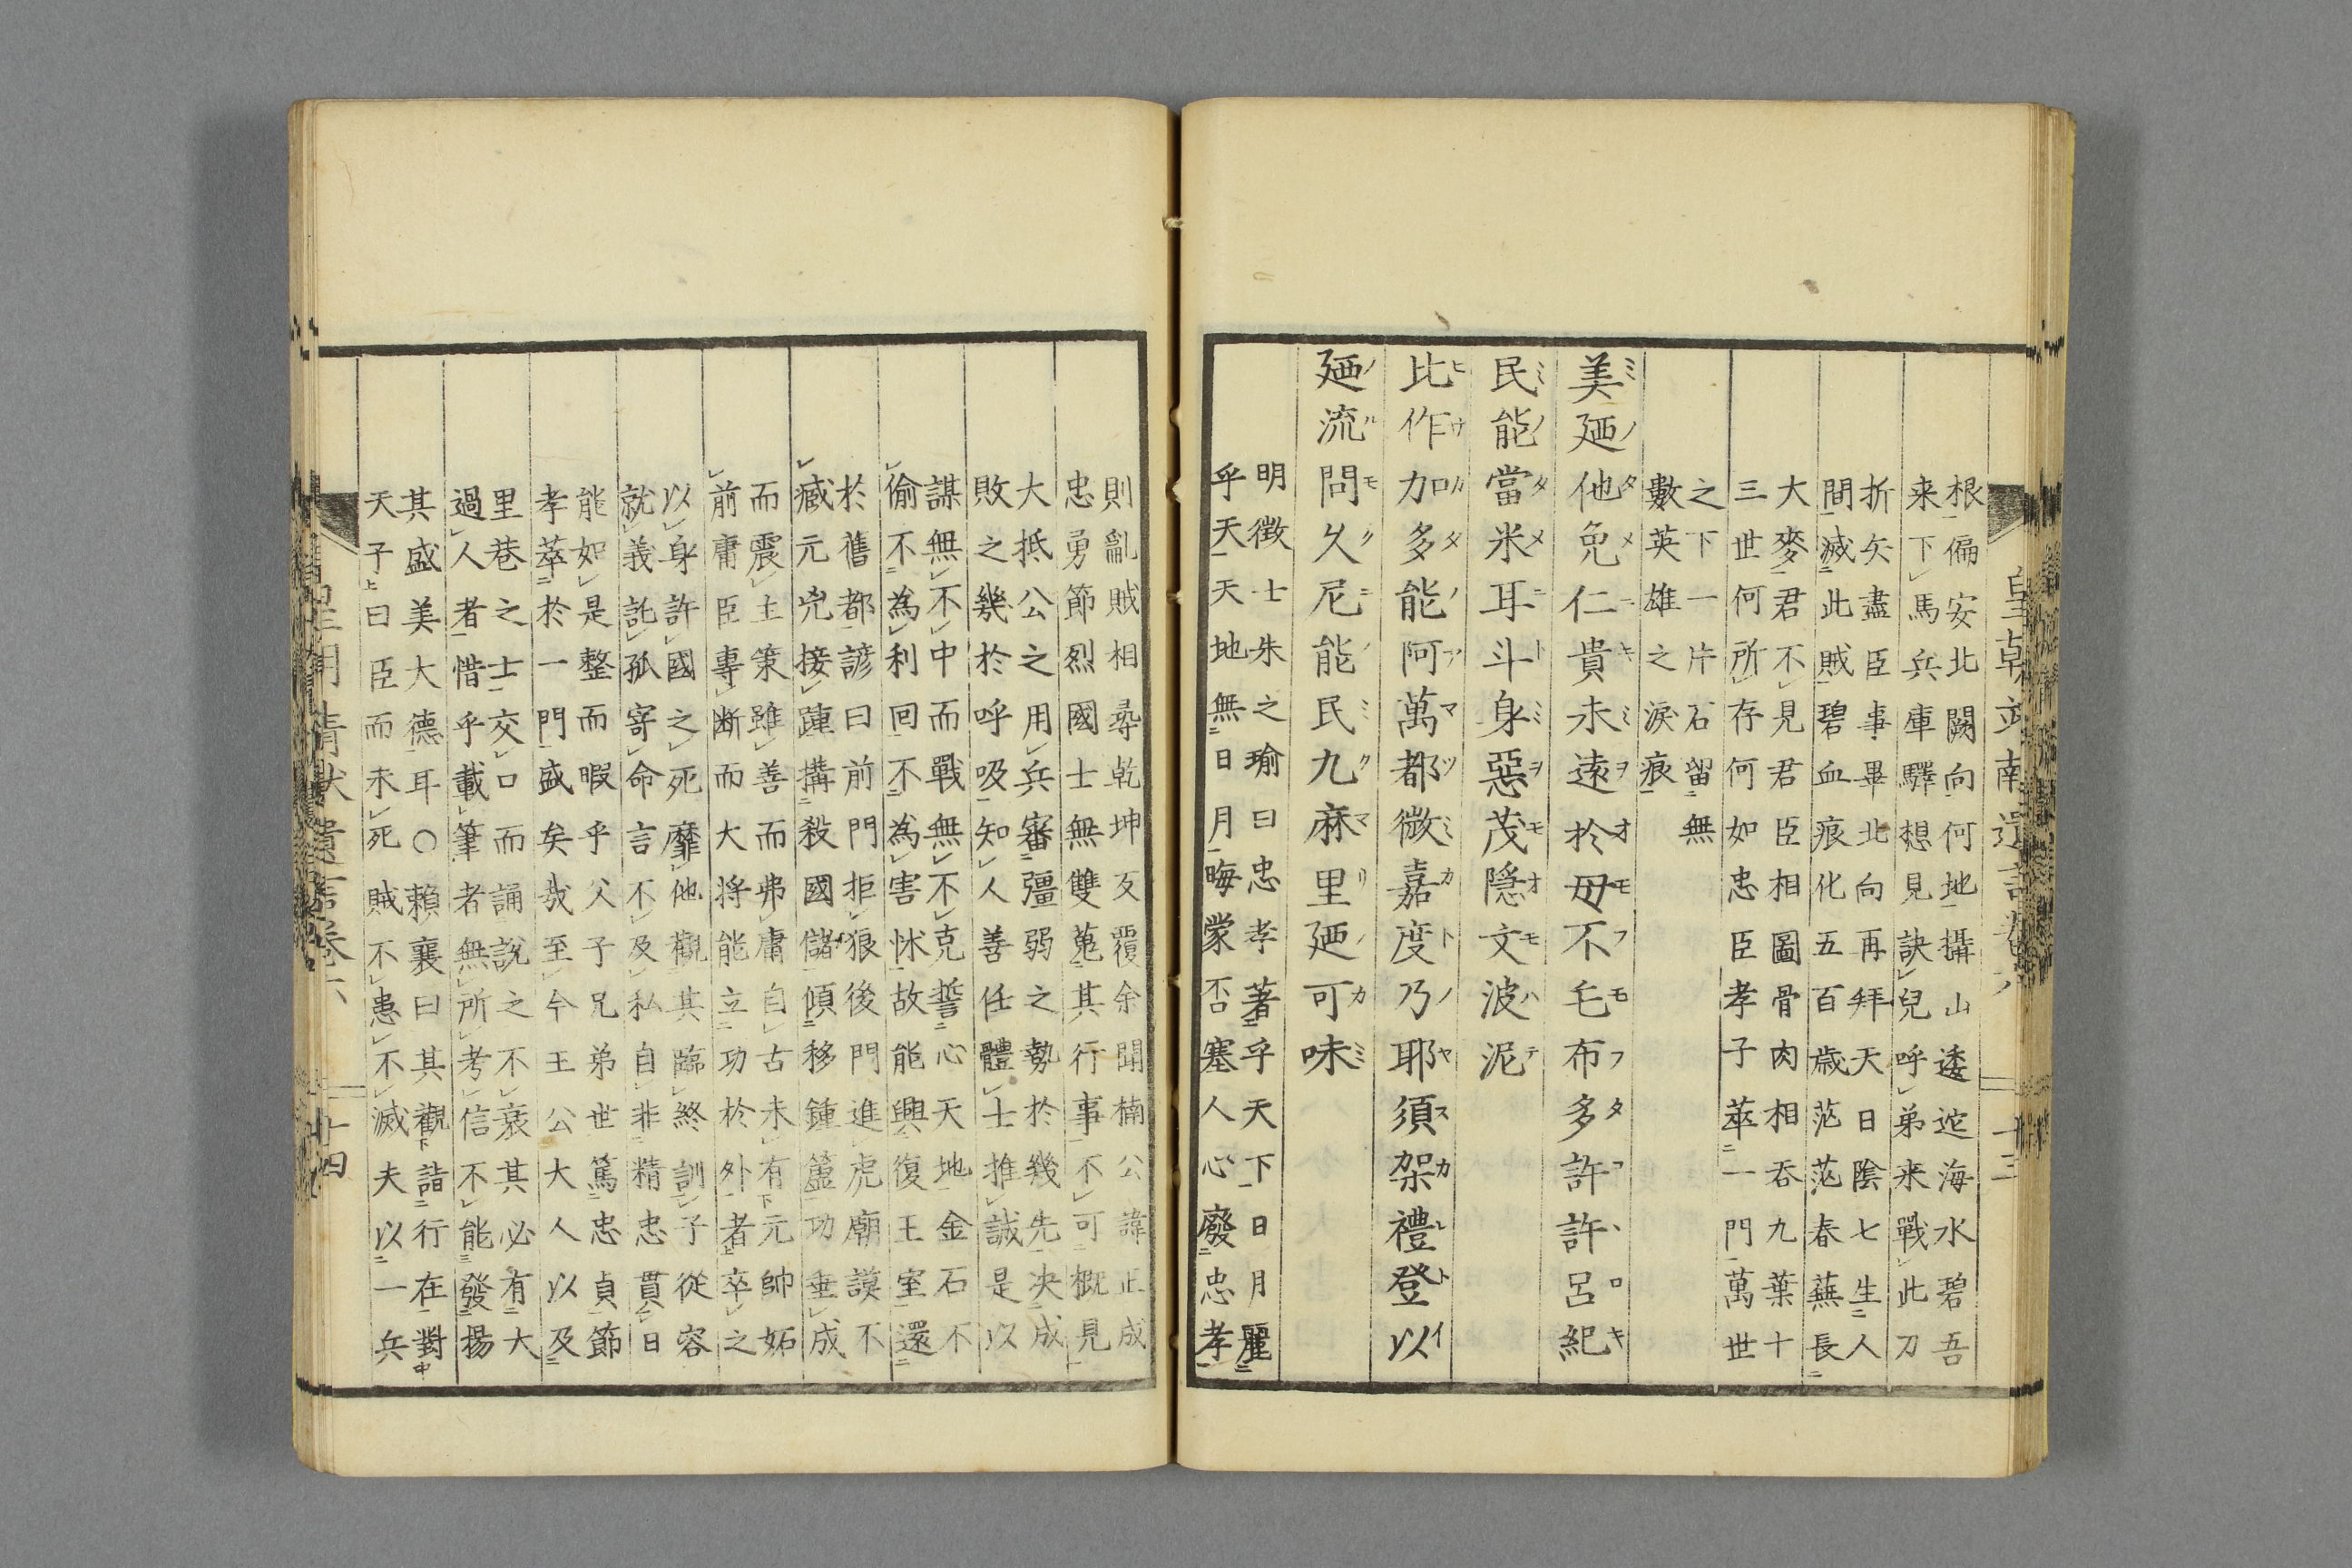 根偏安北闕向何地攝山逶迤海水碧吾
来下馬兵庫驛想見訣兒呼弟来戰此刀
折矢盡臣事畢北向再拜天日陰七生人
間滅此賊碧血痕化五百歳茫茫春蕪長
大麥君不見君臣相圖骨肉相吞九葉十
三世何所存何如忠臣孝子萃一門萬世
之下一片石留無
數英雄之淚痕
美廼他免仁貴未遠於毋不毛布多許許呂紀
ミノタメニキミヲオモフモフタコヽロキ
民能當米耳斗身惡茂隠文波泥
ミノタメニトミヲモオモハテ
比作加多能阿萬都微嘉度乃耶須架禮登以
ヒサカタノアマツミカトノヤスカレトイ
廼流問久尼能民九麻里廼可味
ノルモクニノミクマリノカミ
明徴士朱之瑜曰忠孝著乎天下日月麗
乎天天地無日月晦蒙否塞人心廢忠孝
則亂賊相尋乾坤反覆余聞楠公諱正成
忠勇節烈國士無雙蒐其行事不可概見
大抵公之用兵審彊弱之勢於幾先決成
敗之幾於呼吸知人善任體士推誠是以
謀無不中而戰無不克誓心天地金石不
偷不為利回不為害怵故能興復王室還
於舊都諺曰前門拒狼後門進虎廟謨不
臧元兇接踵搆殺國儲傾移鍾簴功垂成
而震主策雖善而弗庸自古未有元帥妬
前庸臣專断而大将能立功於外者卒之
以身許國之死靡他觀其臨終訓子從容
就義託孤寄命言不及私自非精忠貫日
能如是整而暇乎父子兄弟世篤忠貞節
孝萃於一門盛矣哉至今王公大人以及
里巷之士交口而誦說之不衰其必有大
過人者惜乎載筆者無所考信不能發揚
其盛美大德耳○賴襄曰其觀詣行在對
天子曰臣而未死賊不患不滅夫以一兵
十四